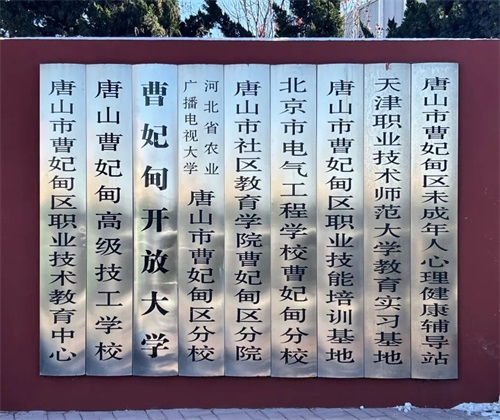 唐山市曹妃甸区职业技术教育中心
唐山曹妃甸高级技工学校
曹妃甸开放大学
河北省农业
广播电视大学
唐山市曹妃甸区分校
唐山市社区教育学院曹妃甸区分院
北京市电气工程学校曹妃甸分校
唐山市曹妃甸区职业技能培训基地
天津职业技术师范大学教育实习基地
唐山市曹妃甸区未成年人心理健康辅导站